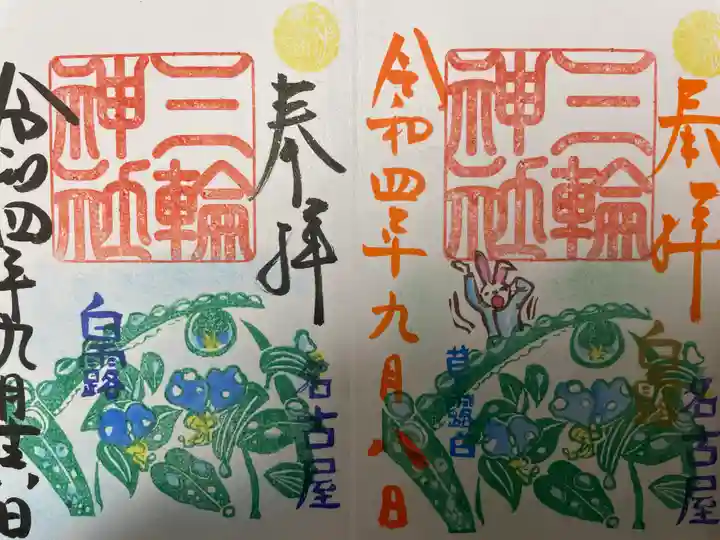 奉拝
三輪
神社
白露
名古屋
奉拝
三輪
神社
令和四年九月八日
草露白
白露
名古屋